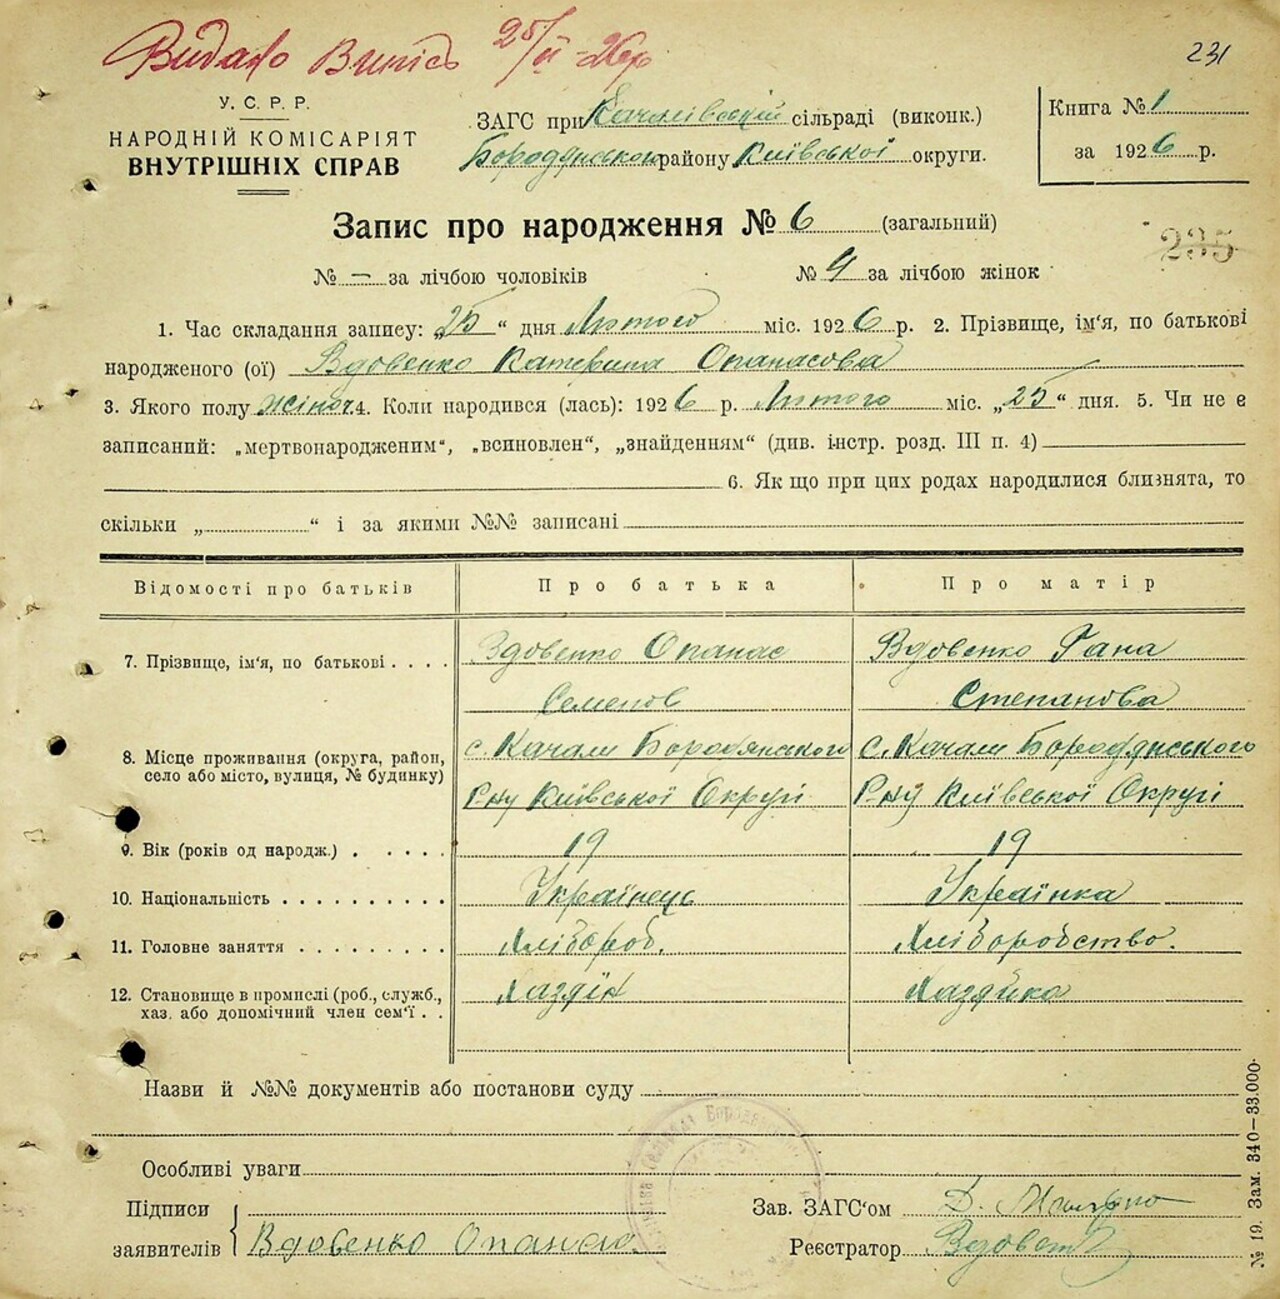 Видано Випісь 25/II-26р
231
У. С. Р. Р.
НАРОДНІЙ КОМІСАРІЯТ
ВНУТРІШНІХ СПРАВ
ЗАГС при Качалівській сільраді (виконк.)
Бородянського району Київської округи.
Книга № 1
за 1926 р.
Запис про народження № 6 (загальний)
235
№ — за лічбою чоловіків № 4 за лічбою жінок
1. Час складання запису: „25“ дня Лютого міс. 1926 р. 2. Прізвище, ім'я, по батькові
народженого (ої) Вдовенко Катерина Опанасова
3. Якого полу жіноч. 4. Коли народився (лась): 1926 р. Лютого міс. „25“ дня. 5. Чи не є
записаний: „мертвонародженим“, „всиновлен“, „знайденням“ (див. інстр. розд. III п. 4)
6. Як що при цих родах народилися близнята, то
скільки „ “ і за якими №№ записані
Відомості про батьків Про батька Про матір
7. Прізвище, ім'я, по батькові . . . . Вдовенко Опанас Вдовенко Гана
Семенов Степанова
8. Місце проживання (округа, район, село або місто, вулиця, № будинку) с. Качали Бородянського с. Качали Бородянського
Р-ну Київської Округі Р-ну Київської Округі
9. Вік (років од народж.) . . . . . 19 19
10. Національність . . . . . . . . . . Українець Українка
11. Головне заняття . . . . . . . . . Хлібороб. Хліборобство.
12. Становище в промислі (роб., служб., Хазяїн Хазяйка
хаз. або допомічний член сем'ї . .
Назви й №№ документів або постанови суду
Особливі уваги
Підписи Зав. ЗАГС'ом Д.
заявителів Вдовенко Опанас Реєстратор
№ 19. Зам. 340—33.000.